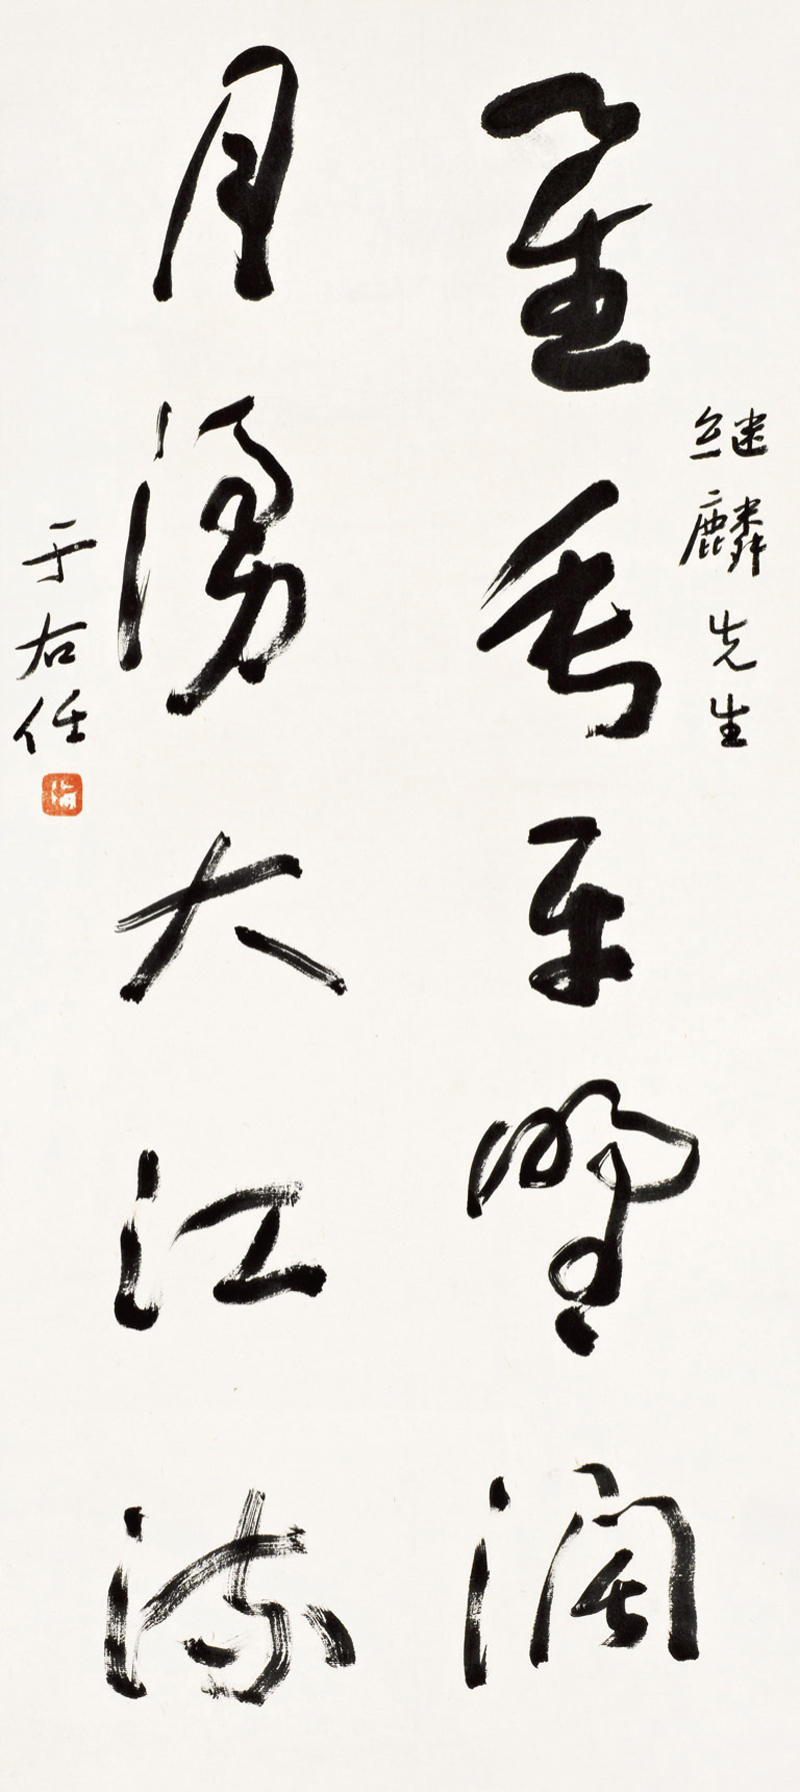 继麟先生
星垂平野濶
月湧大江流
于右任